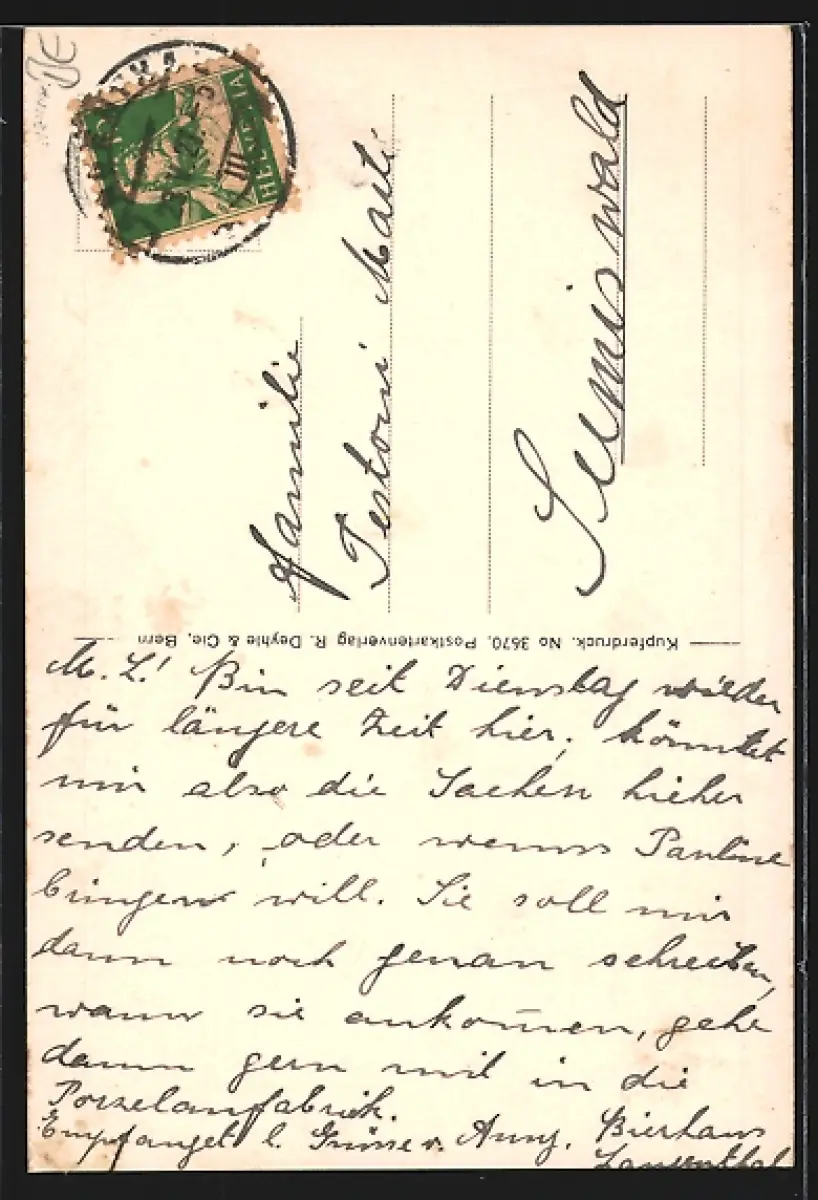 HELVETIA
Familie
Testoni Marti
Sumiswald
Kupferdruck. No 3670, Postkartenverlag R. Deyhle & Cie, Bern
M. L.! Bin seit Dienstag wieder
für längere Zeit hier, könntet
mir also die Sachen hieher
senden, oder wenns Pauline
bringen will. Sie soll mir
dann noch genau schreiben,
wann sie ankomen, gehe
dann gern mit in die
Porzelanfabrik.
Empfanget l. Grüsse v. Anny. Bierhaus
Langenthal